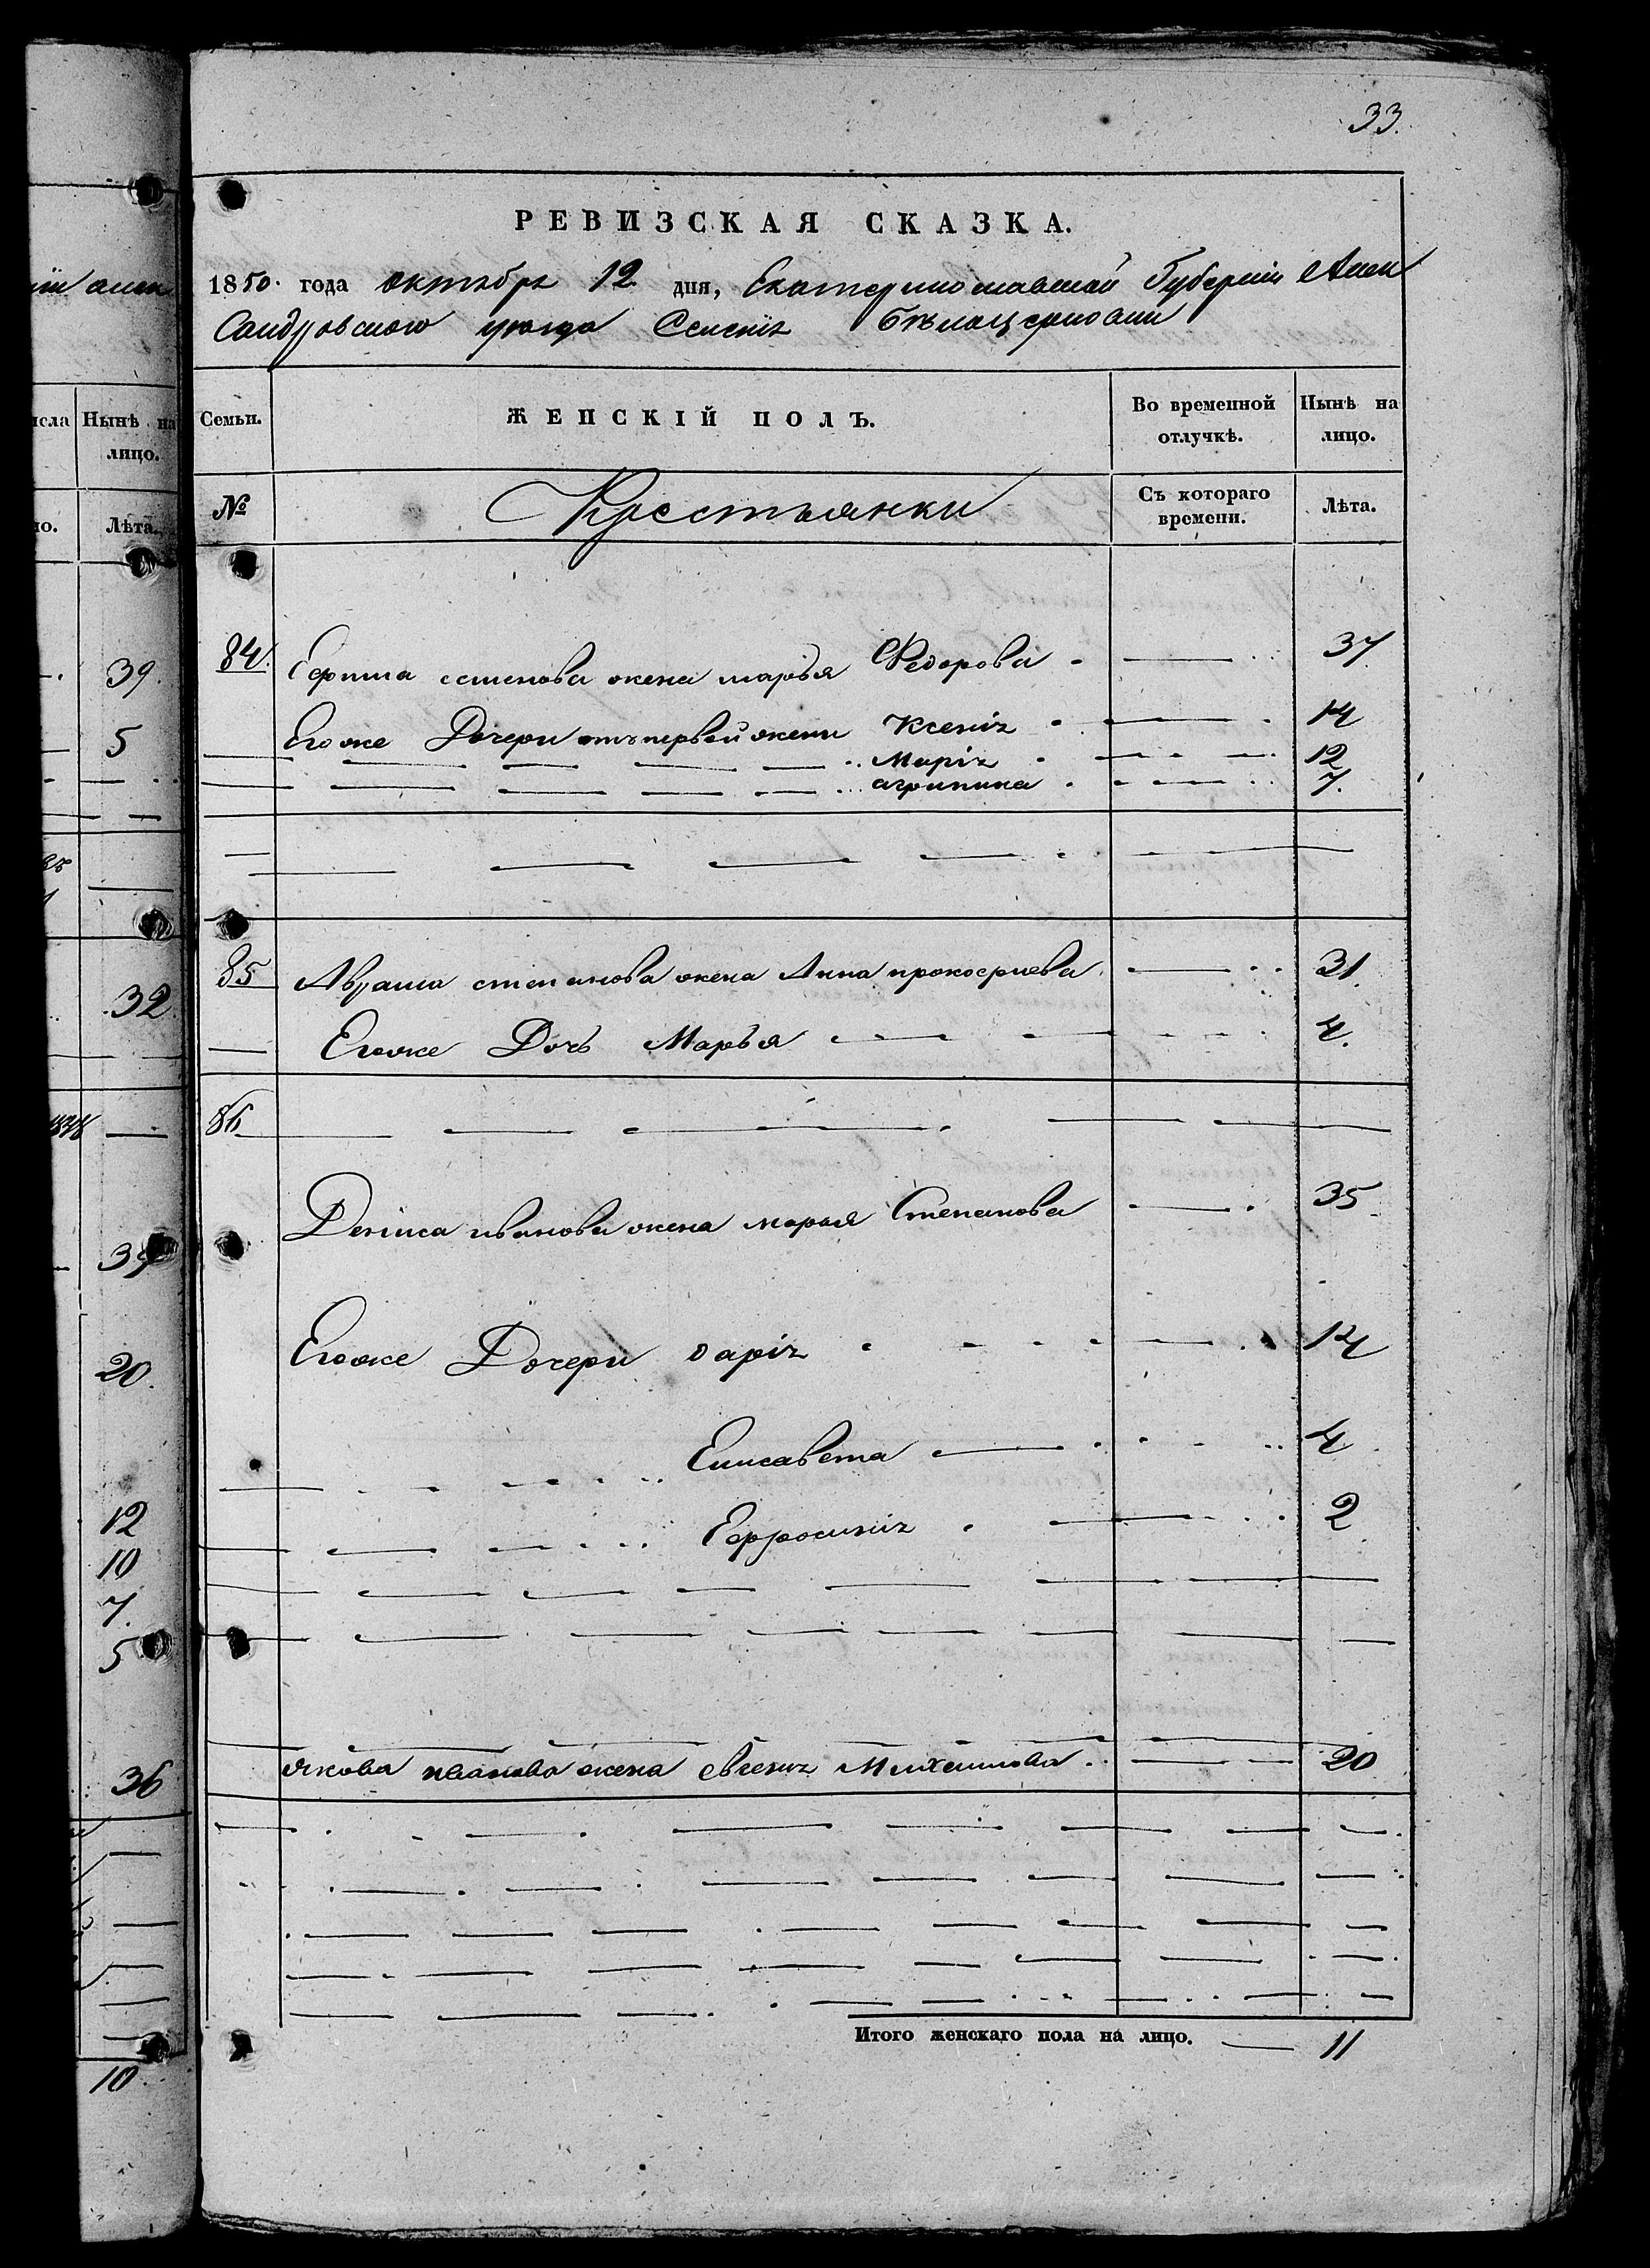 33.
РЕВИЗСКАЯ СКАЗКА.
1850. года октября 12 дня, Екатеринославской Губернии Алек
сандровского уезда Селения Бѣлоцерковки
Семьи. ЖЕНСКІЙ ПОЛЪ. Во временной отлучкѣ. Нынѣ на лицо.
№ Крестьянки Съ котораго времени. Лѣта.
84. Ефима жена марья Федорова 37
Егоже Дочери отъ первой жены Ксенія 14
Марія 12
агрипина 7.
85 Абрама степанова жена Анна прокофиева 31.
Егоже Дочь Марья 4.
86
Дениса иванова жена марья Степанова 35
Егоже Дочери дарія 14
Елисавета 4
Ефросинія 2
якова иванова жена Михаилова 20
Итого женскаго пола на лицо. 11
Нынѣ на лицо.
Лѣта.
39.
5
32
20.
12
10
7.
5
36
10